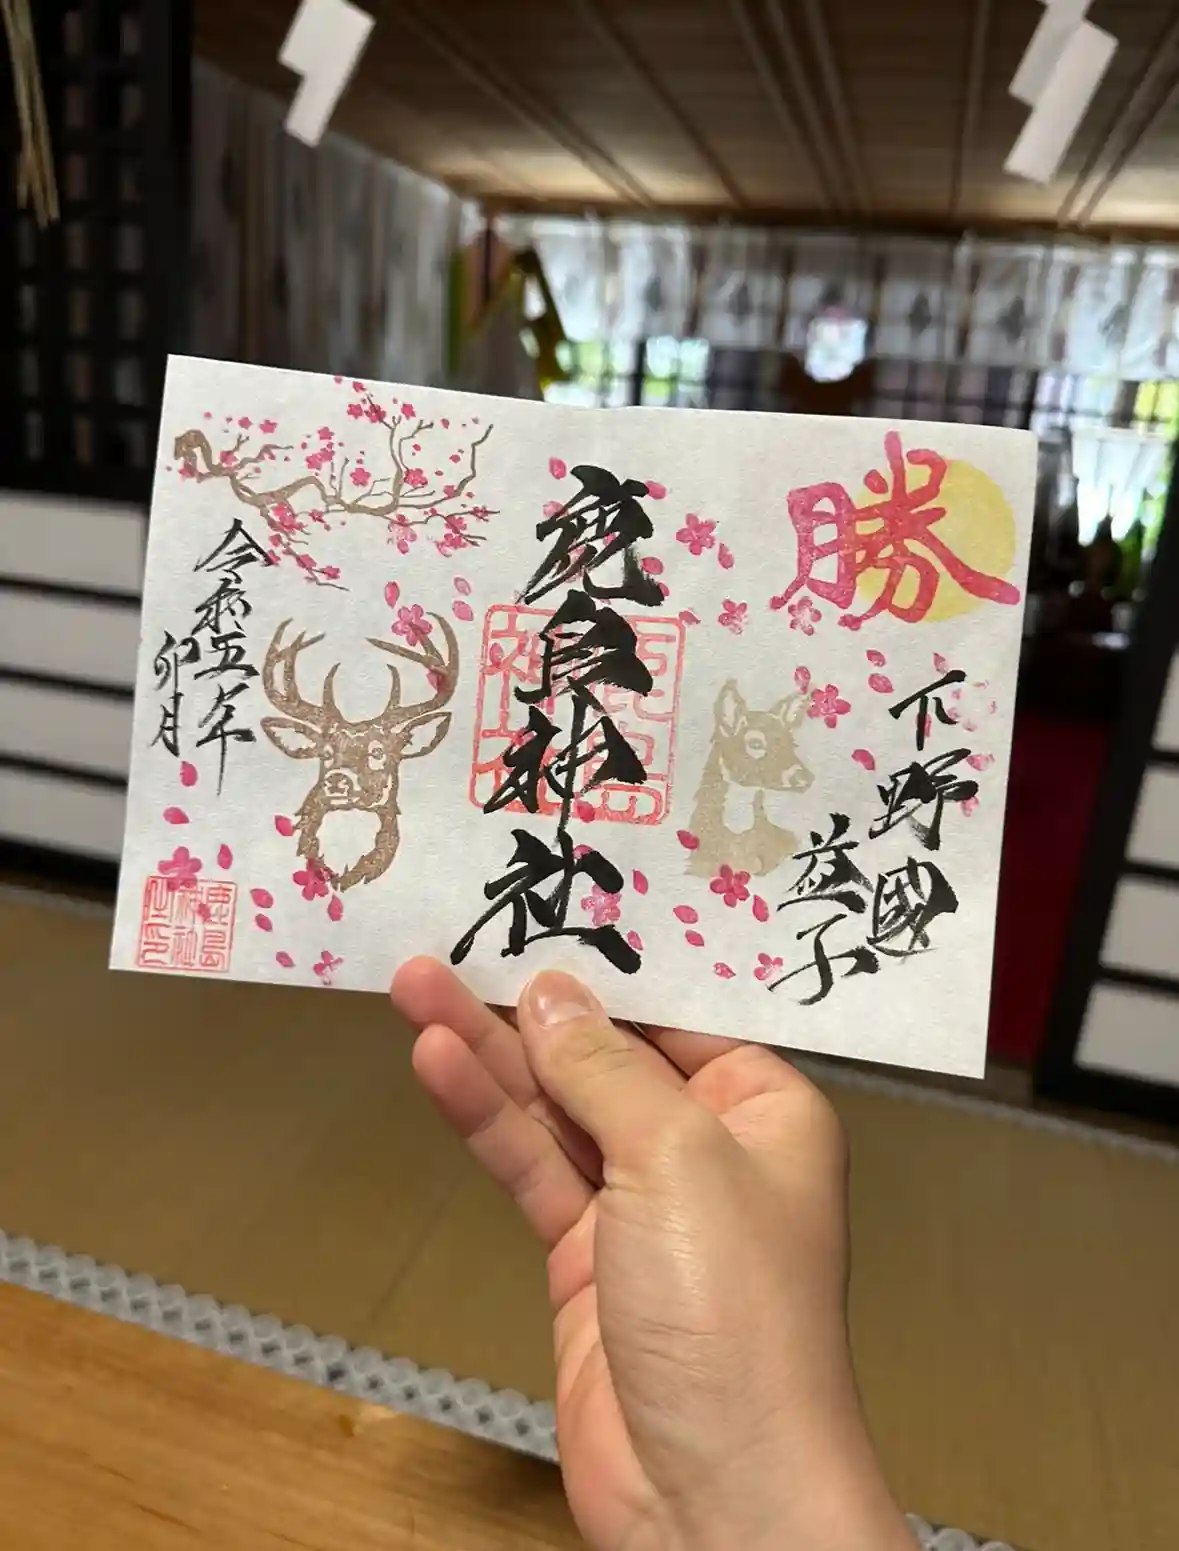 勝
下野國
益子
鹿島神社
令和五年
卯月
鹿島
神社
之印